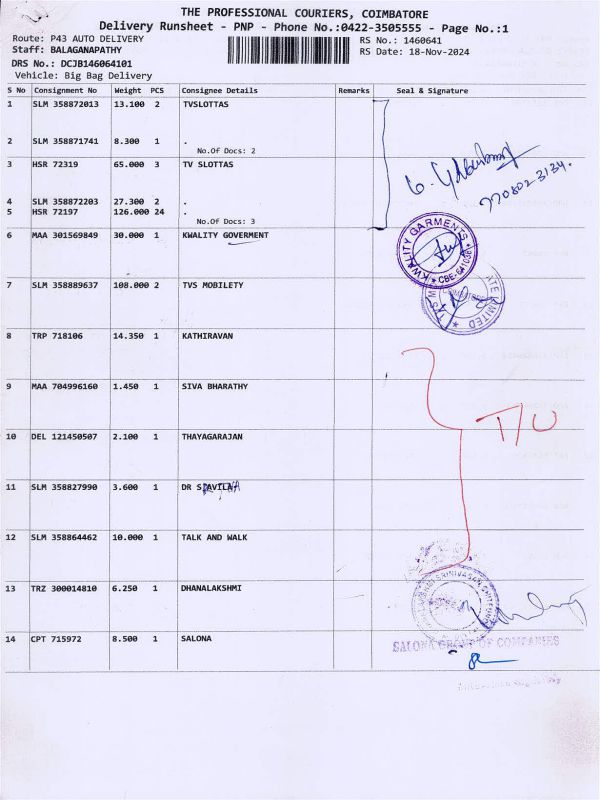 THE PROFESSIONAL COURIERS, COIMBATORE
Delivery Runsheet - PNP - Phone No.:0422-3505555 - Page No.:1
Route: P43 AUTO DELIVERY RS No.: 1460641
Staff: BALAGANAPATHY RS Date: 18-Nov-2024
DRS No.: DCJB146064101
Vehicle: Big Bag Delivery
S No Consignment No Weight PCS Consignee Details Remarks Seal & Signature
1 SLM 358872013 13.100 2 TVSLOTTAS
2 SLM 358871741 8.300 1 .
No.Of Docs: 2
3 HSR 72319 65.000 3 TV SLOTTAS
770802 3134.
4 SLM 358872203 27.300 2 .
5 HSR 72197 126.000 24 .
No.Of Docs: 3
6 MAA 301569849 30.000 1 KWALITY GOVERMENT
KWALITY GARMENTS
7 SLM 358889637 108.000 2 TVS MOBILETY
8 TRP 718106 14.350 1 KATHIRAVAN
9 MAA 704996160 1.450 1 SIVA BHARATHY
T/U
10 DEL 121450507 2.100 1 THAYAGARAJAN
11 SLM 358827990 3.600 1 DR
12 SLM 358864462 10.000 1 TALK AND WALK
13 TRZ 300014810 6.250 1 DHANALAKSHMI
14 CPT 715972 8.500 1 SALONA
SALONA GROUP OF COMPANIES